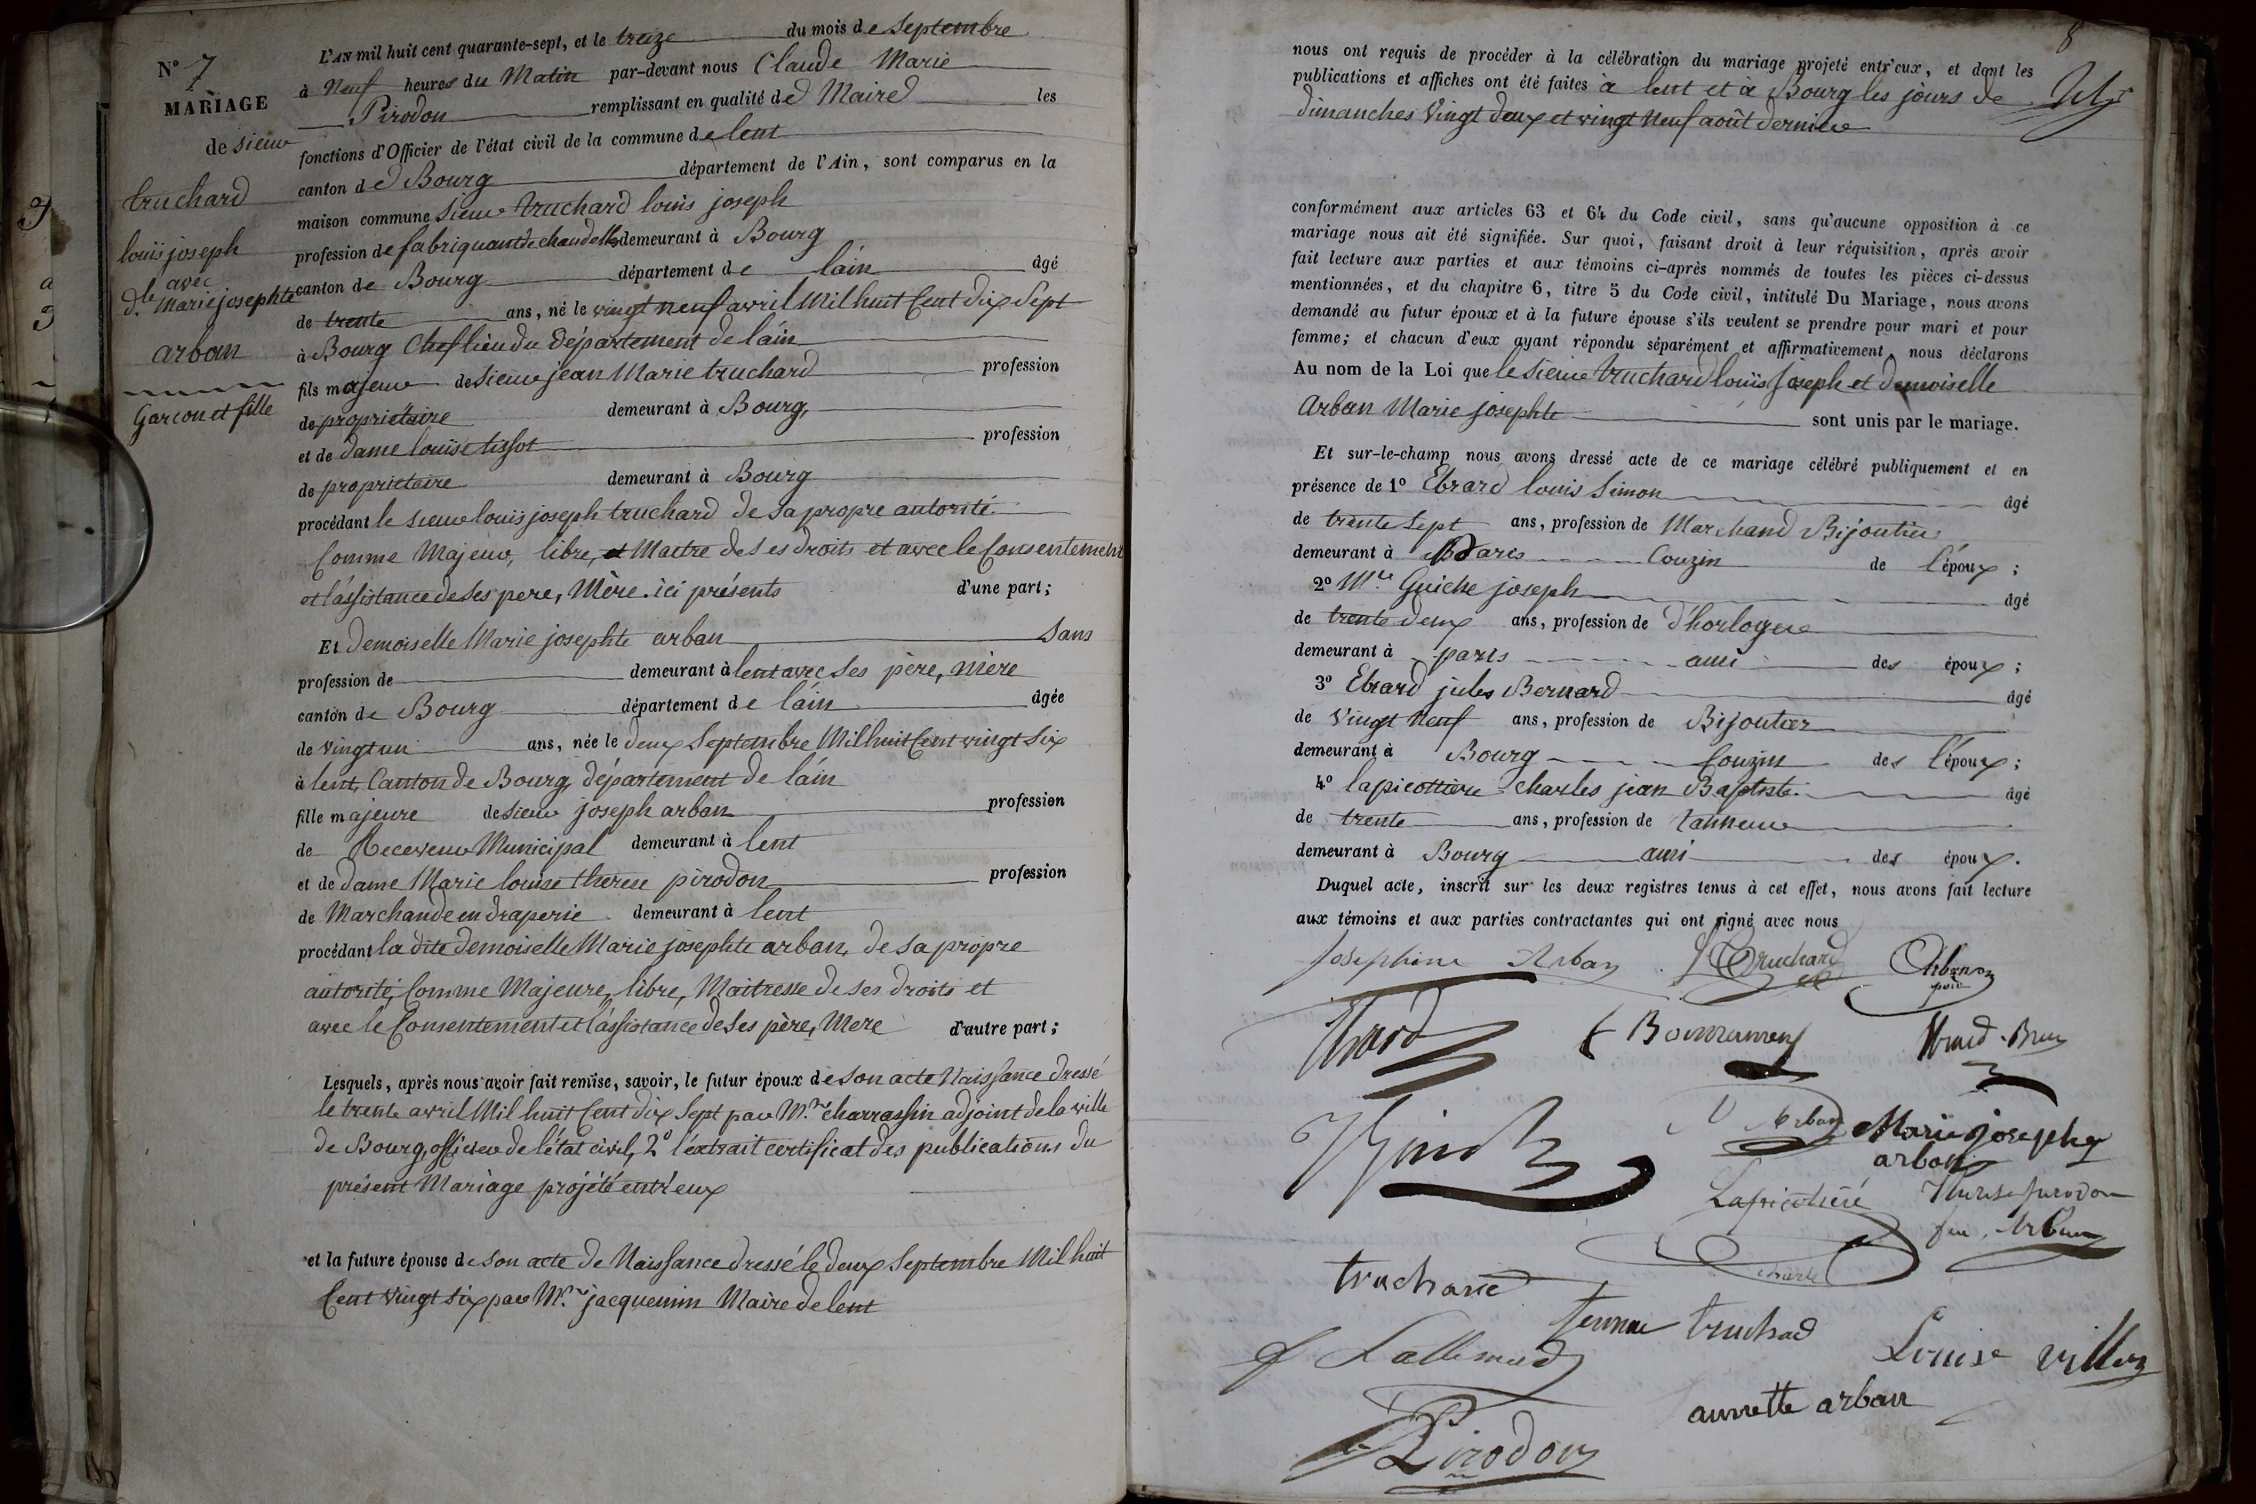 N° 7
MARIAGE
de sieur
truchard
louis joseph
avec
dlle Marie josephte
arban
Garcon et fille
L'AN mil huit cent quarante-sept, et le treize du mois de Septembre
à Neuf heures du Matin par-devant nous Claude Marie
Pirodon remplissant en qualité de Maire les
fonctions d'Officier de l'état civil de la commune de lent
canton de Bourg département de l'Ain, sont comparus en la
maison commune Sieur truchard louis joseph
profession de fabriquant de chandelles demeurant à Bourg
canton de Bourg département de láin âgé
de trente ans, né le vingt neuf avril Mil huit Cent dix Sept
à Bourg Chef lieu du département de láin
fils majeur de sieur jean Marie truchard profession
de propriétaire demeurant à Bourg,
et de dame louise tissot profession
de propriétaire demeurant à Bourg
procédant le sieur louis joseph truchard de sa propre autorité
Comme Majeur, libre, et Maitre de Ses droits et avec le Consentement
et l'assistance de ses pere, Mère. ici présents d'une part;
Et demoiselle Marie josephte arban Sans
profession de demeurant à lent avec Ses père, mère
canton de Bourg département de láin âgée
de vingt un ans, née le deux Septembre Mil huit Cent vingt Six
à lent, Canton de Bourg, département de láin
fille majeure de sieur joseph arban profession
de Receveur Municipal demeurant à lent
et de dame Marie louise therese pirodon profession
de Marchande en draperie demeurant à lent
procédant la dite demoiselle Marie josephte arban, de sa propre
autorité, Comme Majeure, libre, Maitresse de ses droits et
avec le Consentement et l'assistance de ses père, Mere d'autre part;
Lesquels, après nous avoir fait remise, savoir, le futur époux de son acte Naissance dressé
le trente avril Mil huit Cent dix Sept par Mr. charrassin adjoint de la ville
de Bourg, officier de l'état civil, 2° l'extrait certificat des publications du
présent Mariage projété entr'eux
et la future épouse de son acte de Naissance dressé le deux Septembre Mil huit
Cent vingt Six par Mr. jacquemin Maire de lent
8
nous ont requis de procéder à la célébration du mariage projeté entr'eux, et dont les
publications et affiches ont été faites à lent et à Bourg les jours de
dimanches vingt deux et vingt neuf août dernier
conformément aux articles 63 et 64 du Code civil, sans qu'aucune opposition à ce
mariage nous ait été signifiée. Sur quoi, faisant droit à leur réquisition, après avoir
fait lecture aux parties et aux témoins ci-après nommés de toutes les pièces ci-dessus
mentionnées, et du chapitre 6, titre 5 du Code civil, intitulé Du Mariage, nous avons
demandé au futur époux et à la future épouse s'ils veulent se prendre pour mari et pour
femme; et chacun d'eux ayant répondu séparément et affirmativement, nous déclarons
Au nom de la Loi que le sieur truchard louis joseph et demoiselle
Arban Marie josephte sont unis par le mariage.
Et sur-le-champ nous avons dressé acte de ce mariage célébré publiquement et en
présence de 1° Ebrard louis Simon âgé
de trente Sept ans, profession de Marchand Bijoutier
demeurant à Paris Couzin de l'époux;
2° Mr. Guiche joseph âgé
de trente deux ans, profession de d'horloger
demeurant à paris ami des époux;
3° Ebrard jules Bernard âgé
de vingt Neuf ans, profession de Bijoutier
demeurant à Bourg Couzin des l'époux;
4° lapicottiere charles jean Baptiste âgé
de trente ans, profession de tanneur
demeurant à Bourg ami des époux.
Duquel acte, inscrit sur les deux registres tenus à cet effet, nous avons fait lecture
aux témoins et aux parties contractantes qui ont signé avec nous
Josephine Arban Truchard Arban
père
Ebrard
Arban Marie josephe
arban
Lapicotiere Therese pirodon
Arban
charles
truchard
femme truchard
Lallemand Louise
annette arban
Pirodon